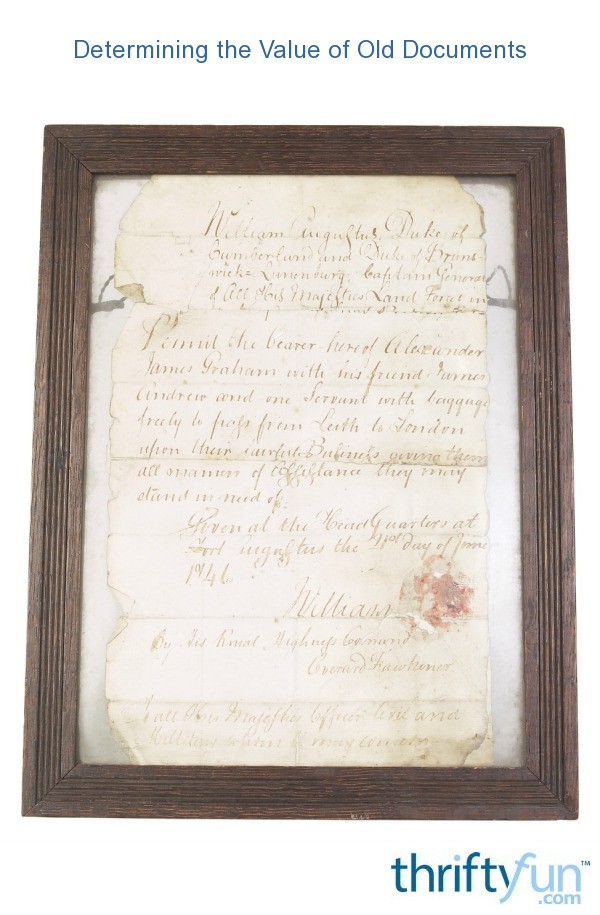 Determining the Value of Old Documents
William Augustus Duke of
Cumberland and Duke of Bruns-
wick= Lunenburg Captain General
of All His Majesties Land Forces in
Permit the bearer hereof Alexander
James Graham with his friend James
Andrew and one Servant with baggage
freely to pass from Leith to London
upon their lawfull Business giving them
all manner of Assistance they may
stand in need of.
Given at the Head Quarters at
Fort Augustus the 21st day of June
1746
William
By His Royal Highness Comand
Everard Fawkener
To all His Majesties Officers Civil and
Military whom it may concern
thriftyfun™
.com